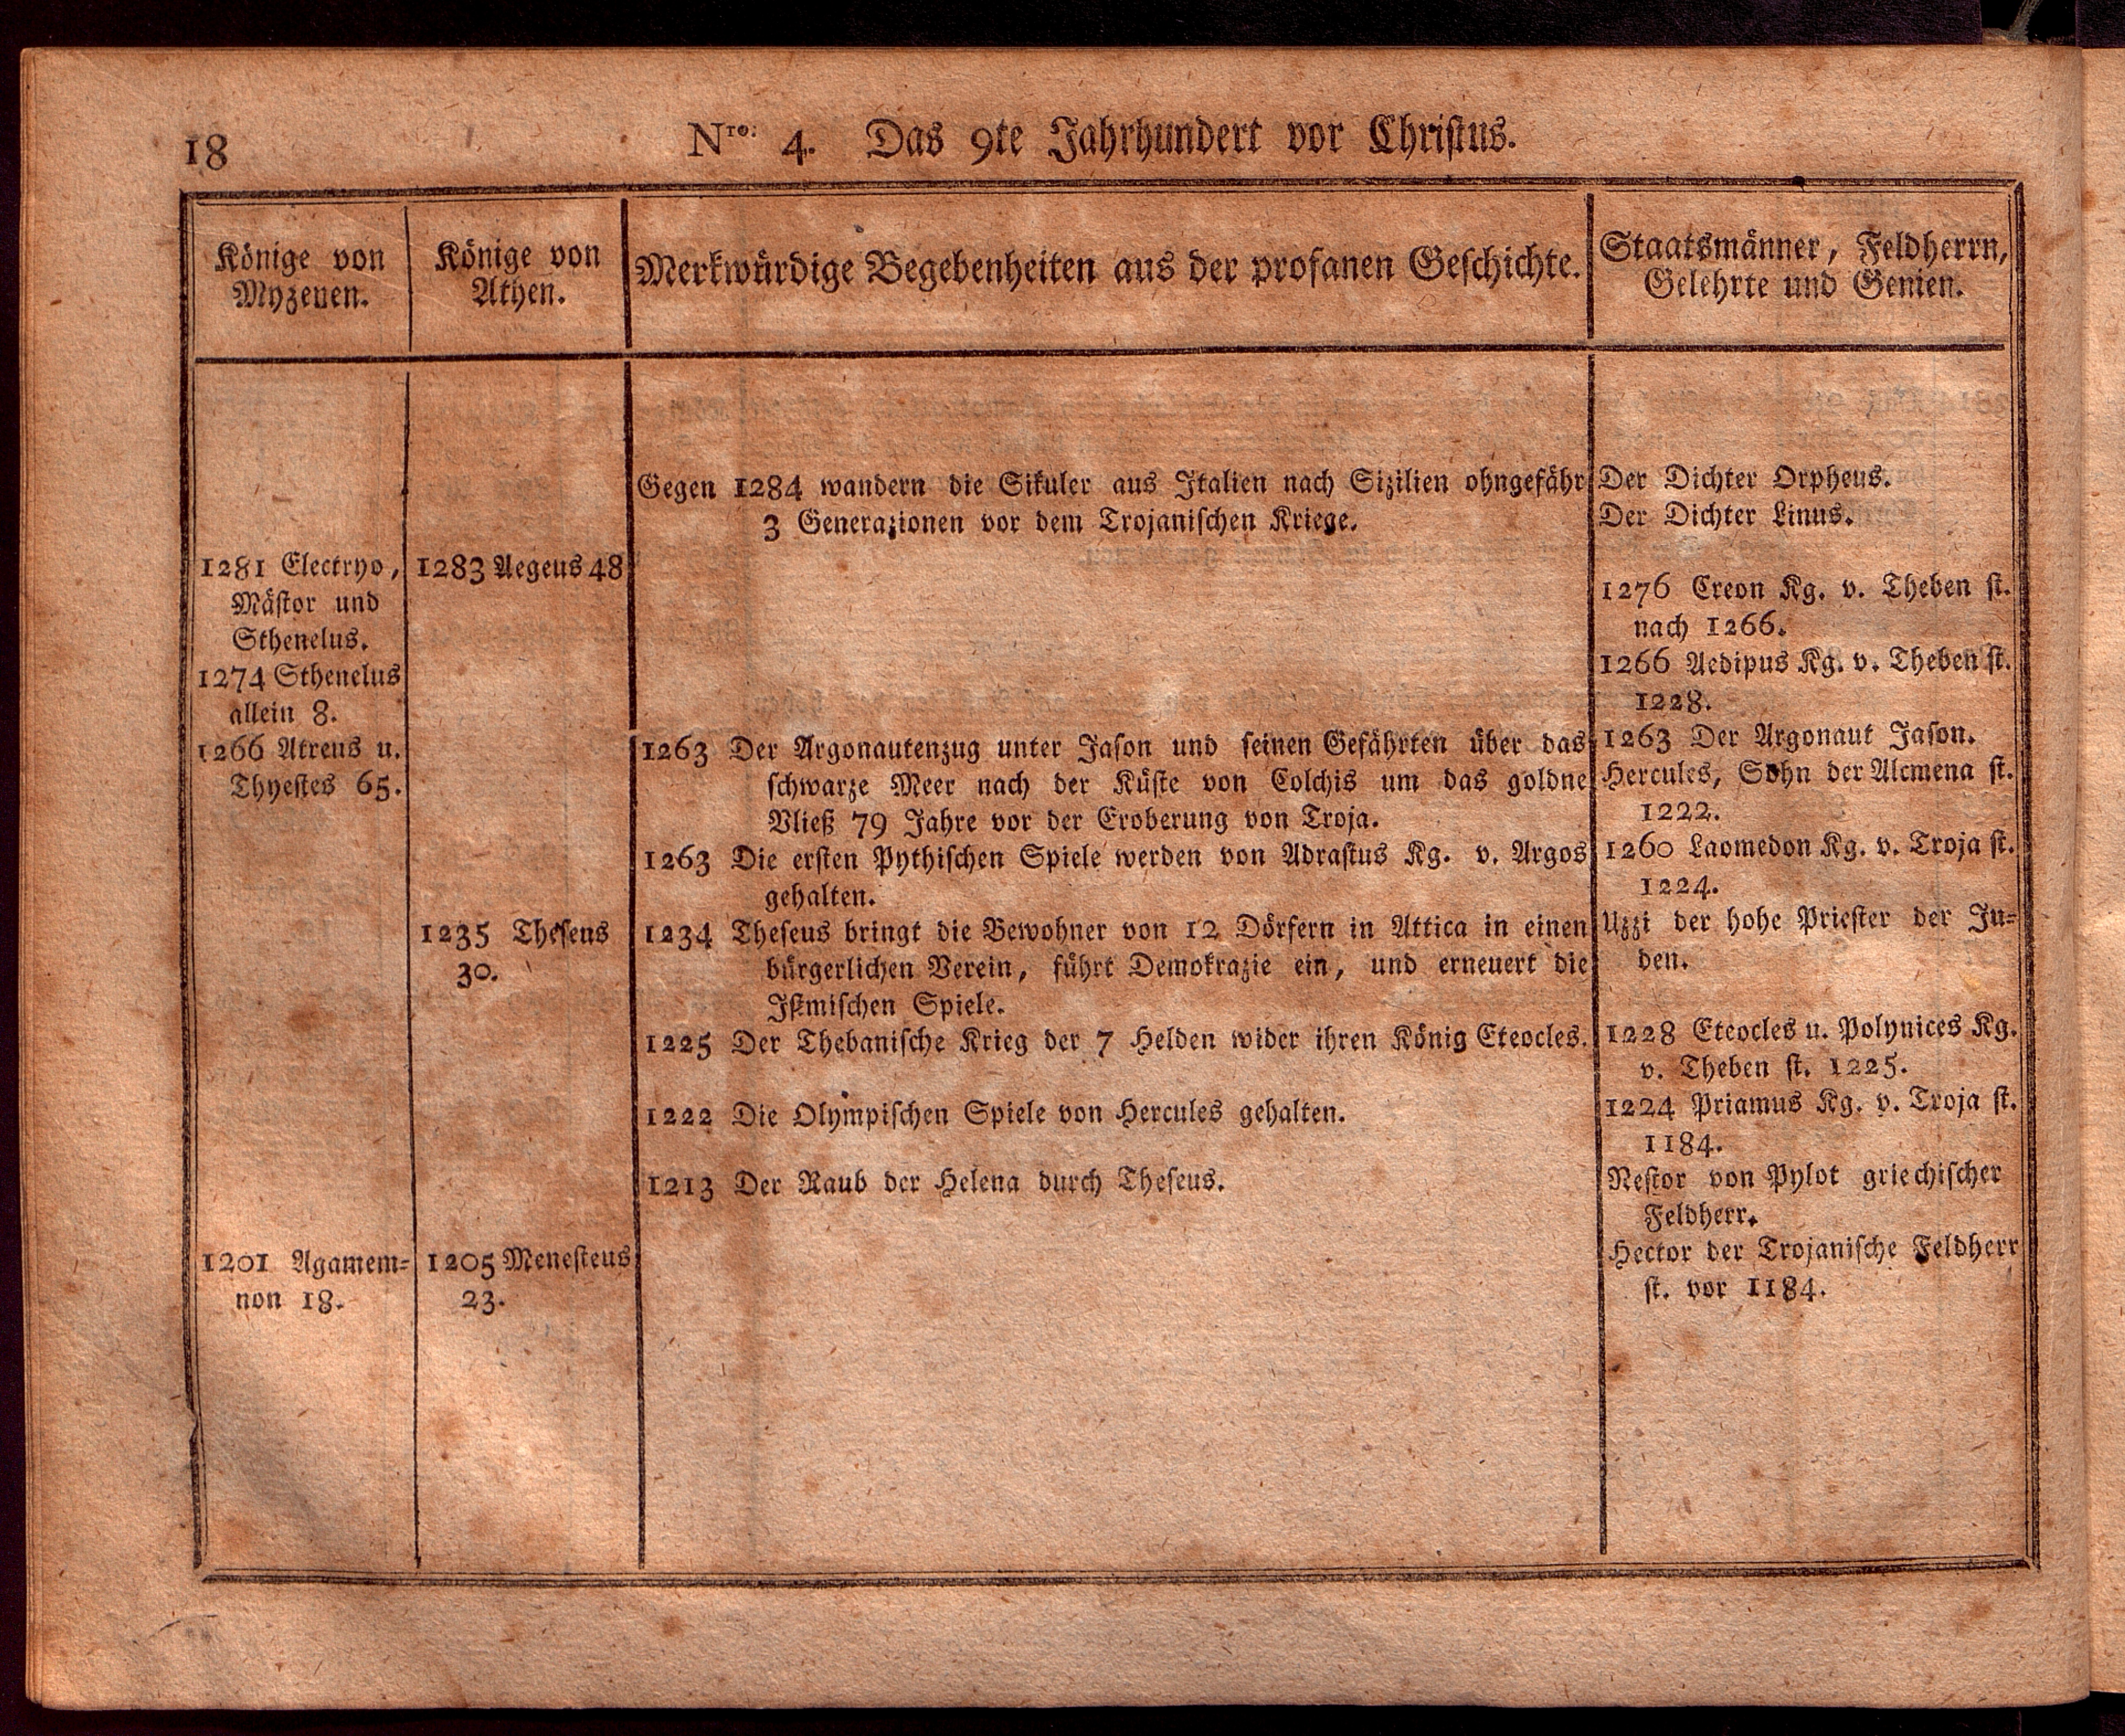 18
Nro: 4. Das 9te Jahrhundert vor Christus.
Könige von
Myzenen.
Könige von
Athen.
Merkwürdige Begebenheiten aus der profanen Geschichte.
Staatsmänner, Feldherrn,
Gelehrte und Genien.
1281 Electryo,
Mästor und
Sthenelus.
1274 Sthenelus
allein 8.
1266 Atreus u.
Thyestes 65.
1201 Agamem-
non 18.
1283 Aegeus 48
1235 Theseus
30.
1205 Menesteus
23.
Gegen 1284 wandern die Sikuler aus Italien nach Sizilien ohngefähr
3 Generazionen vor dem Trojanischen Kriege.
1263 Der Argonautenzug unter Jason und seinen Gefährten über das
schwarze Meer nach der Küste von Colchis um das goldne
Vließ 79 Jahre vor der Eroberung von Troja.
1263 Die ersten Pythischen Spiele werden von Adrastus Kg. v. Argos
gehalten.
1234 Theseus bringt die Bewohner von 12 Dörfern in Attica in einen
bürgerlichen Verein, führt Demokrazie ein, und erneuert die
Istmischen Spiele.
1225 Der Thebanische Krieg der 7 Helden wider ihren König Eteocles.
1222 Die Olympischen Spiele von Hercules gehalten.
1213 Der Raub der Helena durch Theseus.
Der Dichter Orpheus.
Der Dichter Linus.
1276 Creon Kg. v. Theben st.
nach 1266.
1266 Aedipus Kg. v. Theben st.
1228.
1263 Der Argonaut Jason.
Hercules, Sohn der Alcmena st.
1222.
1260 Laomedon Kg. v. Troja st.
1224.
Uzzi der hohe Priester der Ju-
den.
1228 Eteocles u. Polynices Kg.
v. Theben st. 1225.
1224 Priamus Kg. v. Troja st.
1184.
Nestor von Pylot griechischer
Feldherr.
Hector der Trojanische Feldherr
st. vor 1184.